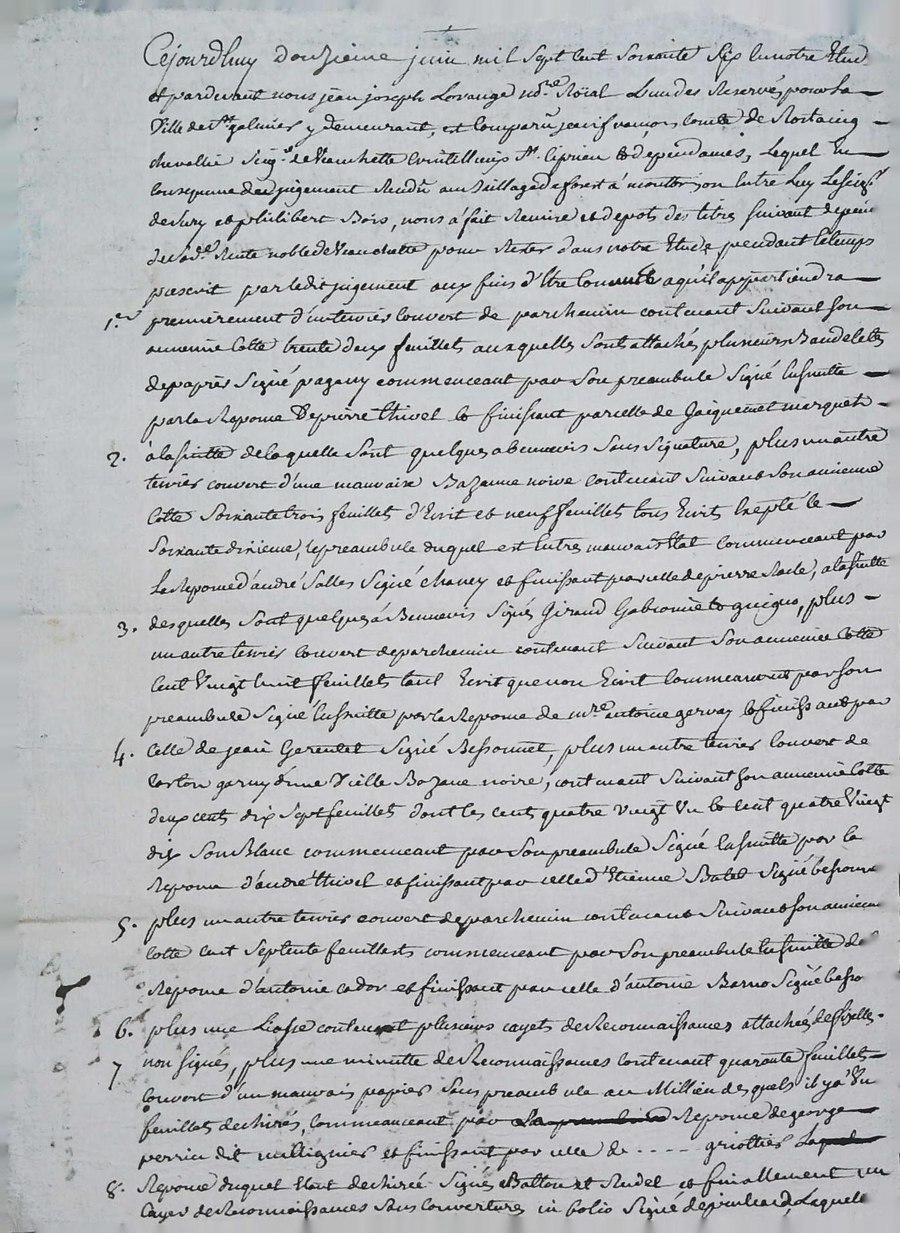 Cejourdhuy douzieme juin mil sept cent soixante six en notre Etude
et pardevant nous jean joseph Lorange no.re Roial L'un des Reservés pour La
Ville de St galmier y Demeurant, est comparu jean françois comte de Rostaing
chevallier Seig.r de Veauchette St. Ciprien & dependances, Lequel En
consequence du jugement Rendu au Baillage de forest à montbrison Entre Luy Le Seig.r
de Sury et philibert Bois, nous à fait Remise et depots des titres suivant
de Rente noble de Veauchette pour Rester dans notre Etude pendant le temps
prescrit par ledit jugement aux fins d'Etre a qu'il appartiendra
1.er premierement d'un terrier couvert de parchemin contenant suivant son
ancienne Cotte trente deux feuillets auxquelles sont attachés plusieurs Bandelettes
de papier signé pagany commenceant par son preambule signé Ensuitte
par la Reponse De pierre thivel & finissant par celle de
2. à la suitte de laquelle sont quelques abennevis sans signature, plus un autre
terrier couvert d'une mauvaise Bazanne noire contenant suivant son ancienne
Cotte soixante trois feuillets d'Ecrit et neuf feuillets tous Ecrits Excepté le
soixante dixieme, le preambule duquel est En tres mauvais Etat commenceant par
La Reponse d'andré Salles signé chaney et finissant par celle de pierre, a la suitte
3. desquelles sont quelques à Bennevis signés Giraud, plus
un autre terrier couvert de parchemin contenant suivant son ancienne Cotte
cent Vingt huit feuillets tant Ecrit que non Ecrit commenceant par son
preambule signé Ensuitte par la Reponse de m.re antoine gervay & finissant par
4. celle de jean Gerentet signé Bessonnet, plus un autre terrier couvert de
carton garny d'une Vielle Bazane noire, contenant suivant son ancienne Cotte
deux cents dix sept feuillets dont les cents quatre Vingt Un & cent quatre Vingt
dix son Blanc commenceant par son preambule signé Ensuitte par la
Reponse d'andré thivel et finissant par celle d'Etienne Batet signé
5. plus un autre terrier couvert de parchemin contenant suivant son ancienne
Cotte cent septente feuillets commenceant par son preambule Ensuitte de
Reponse d'antoine cador et finissant par celle d'antoine signé
6. plus une Liasse contenant plusieurs cayets de Reconnaissances attachées de fiscelles
7 non signés, plus une minutte de Reconnaissances contenant quarante feuillets
couvert d'un mauvais papier sans preambule au Millieu des quels il y a Un
feuillet dechirés, commenceant par Reponse de george
perrin dit et finissant par celle de - - - - griottier
8. Reponse duquel Etant dechirée signés Batton et Rudel et finallement un
Cayer de Reconnaissances sans couverture in folio signé depinhac, Laquelle